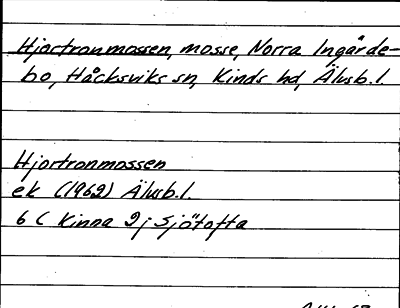 Hjortronmossen, mosse, Norra Ingårde-
bo, Håcksviks sn, Kinds hd, Älvsb.l.
Hjortronmossen
ek (1969) Älvsb.l.
6 C Kinna 2j Sjötofta